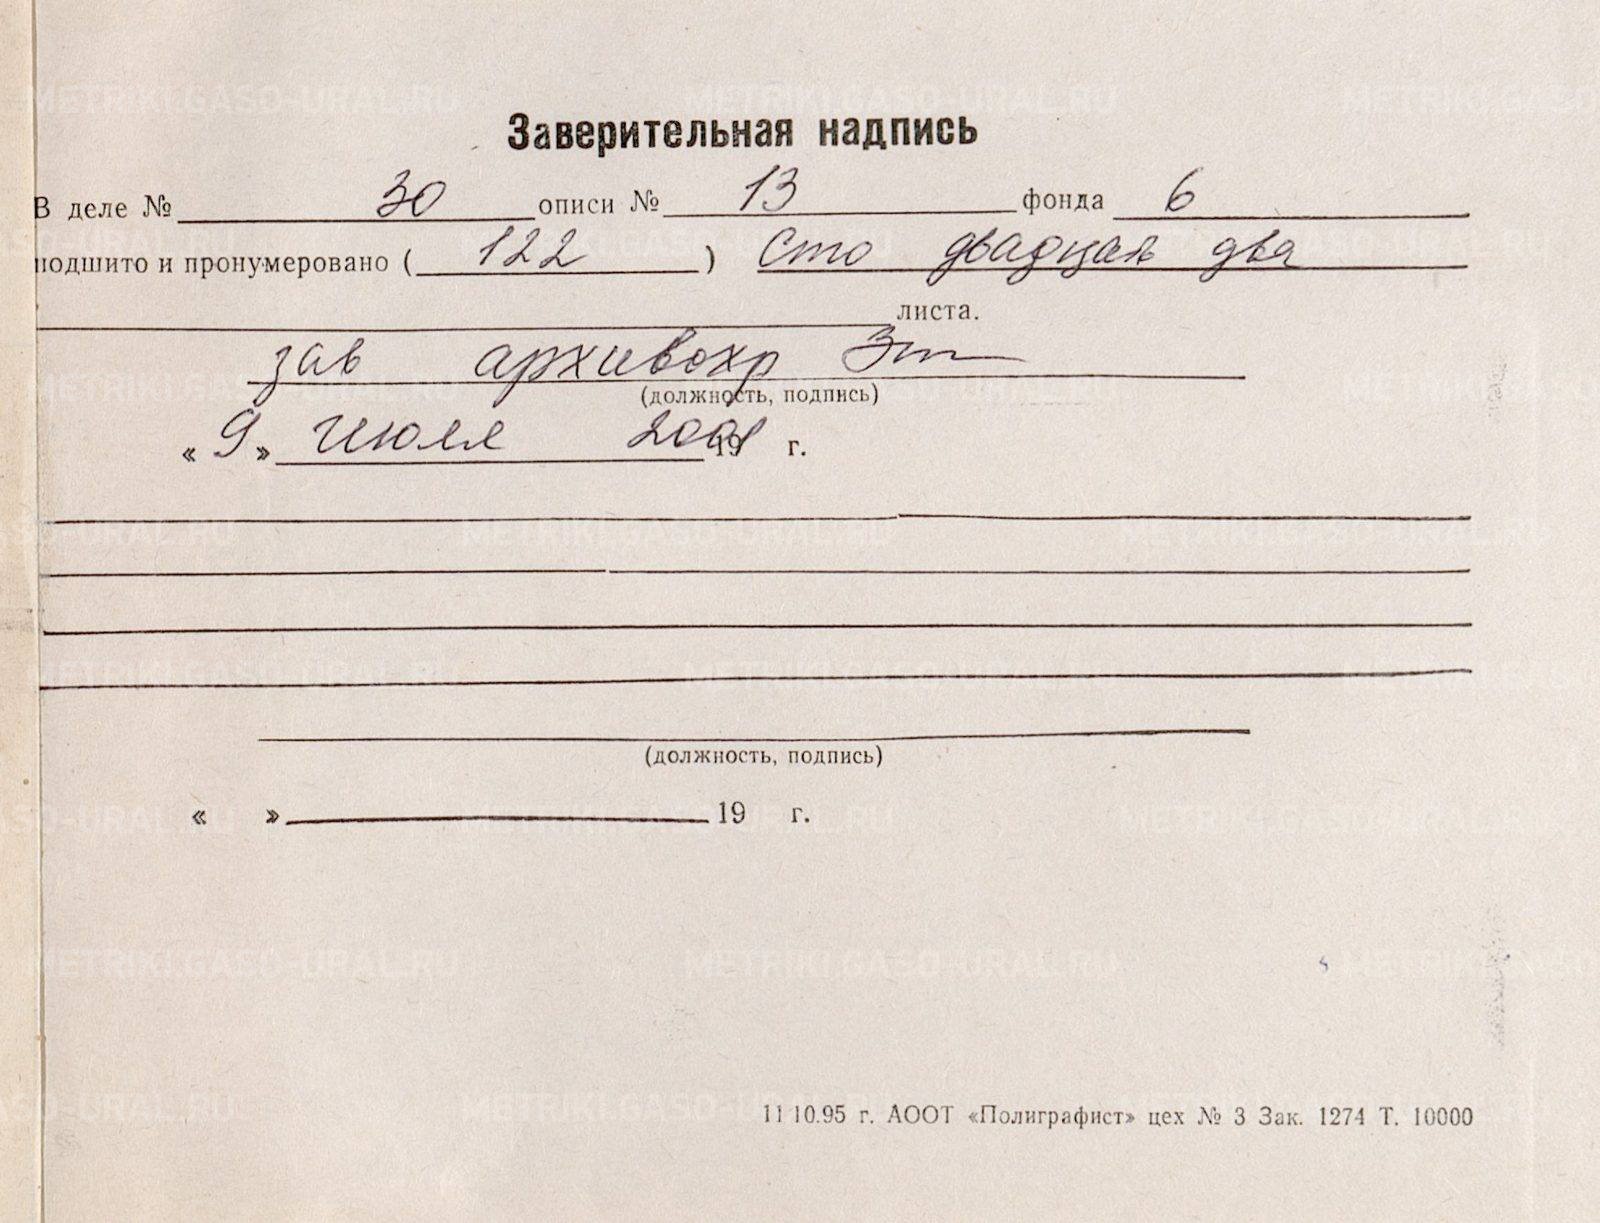 Заверительная надпись
В деле № 30 описи № 13 фонда 6
подшито и пронумеровано ( 122 ) Сто двадцать два
листа.
зав архивохр
(должность, подпись)
« 9 » июля 2001 19 г.
(должность, подпись)
« » 19 г.
11 10.95 г. АООТ «Полиграфист» цех № 3 Зак. 1274 Т. 10000
METRIKI.GASO-URAL.RU